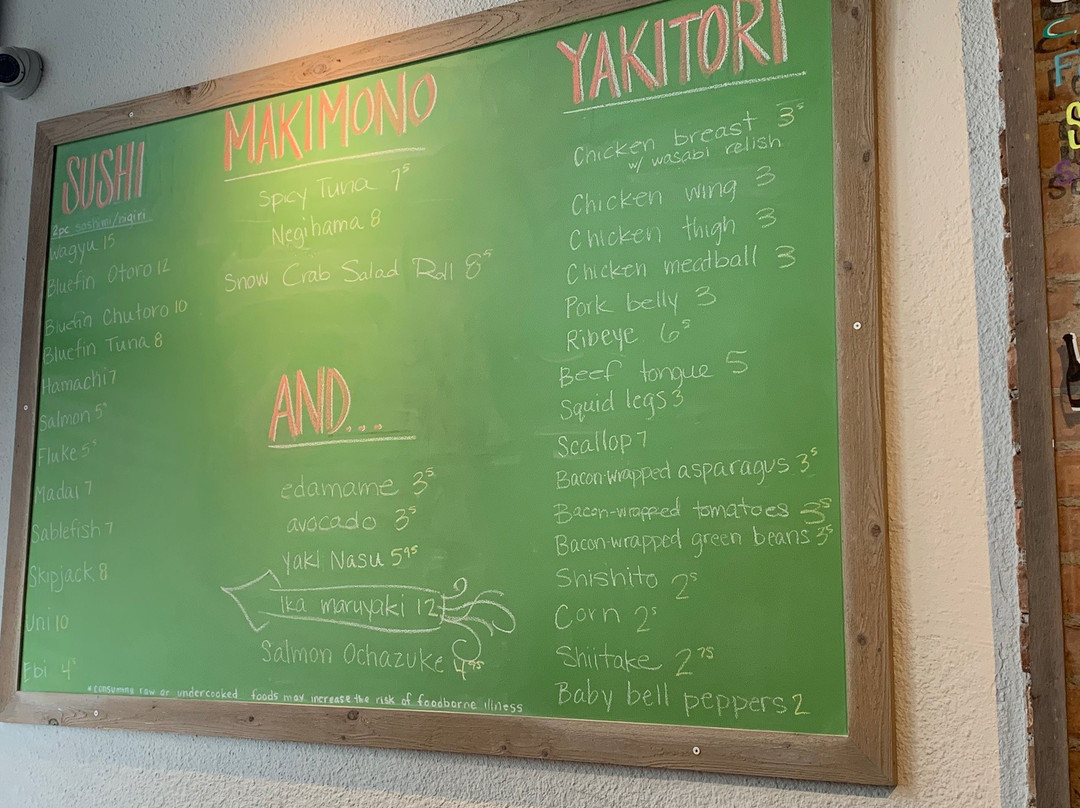 SUSHI
2pc sashimi/nigiri
Wagyu 15
Bluefin Otoro 12
Bluefin Chutoro 10
Bluefin Tuna 8
Hamachi 7
Salmon 5⁵
Fluke 5⁵
Madai 7
Sablefish 7
Skipjack 8
Uni 10
Ebi 4⁵
MAKIMONO
Spicy Tuna 7⁵
Negihama 8
Snow Crab Salad Roll 8⁵
AND...
edamame 3⁵
avocado 3⁵
Yaki Nasu 5⁹⁵
Ika maruyaki 12
Salmon Ochazuke 4⁹⁵
*consuming raw or undercooked foods may increase the risk of foodborne illness
YAKITORI
Chicken breast 3⁵
w/ wasabi relish
Chicken wing 3
Chicken thigh 3
Chicken meatball 3
Pork belly 3
Ribeye 6⁵
Beef tongue 5
Squid legs 3
Scallop 7
Bacon-wrapped asparagus 3⁵
Bacon-wrapped tomatoes 3⁵
Bacon-wrapped green beans 3⁵
Shishito 2⁵
Corn 2⁵
Shiitake 2⁷⁵
Baby bell peppers 2